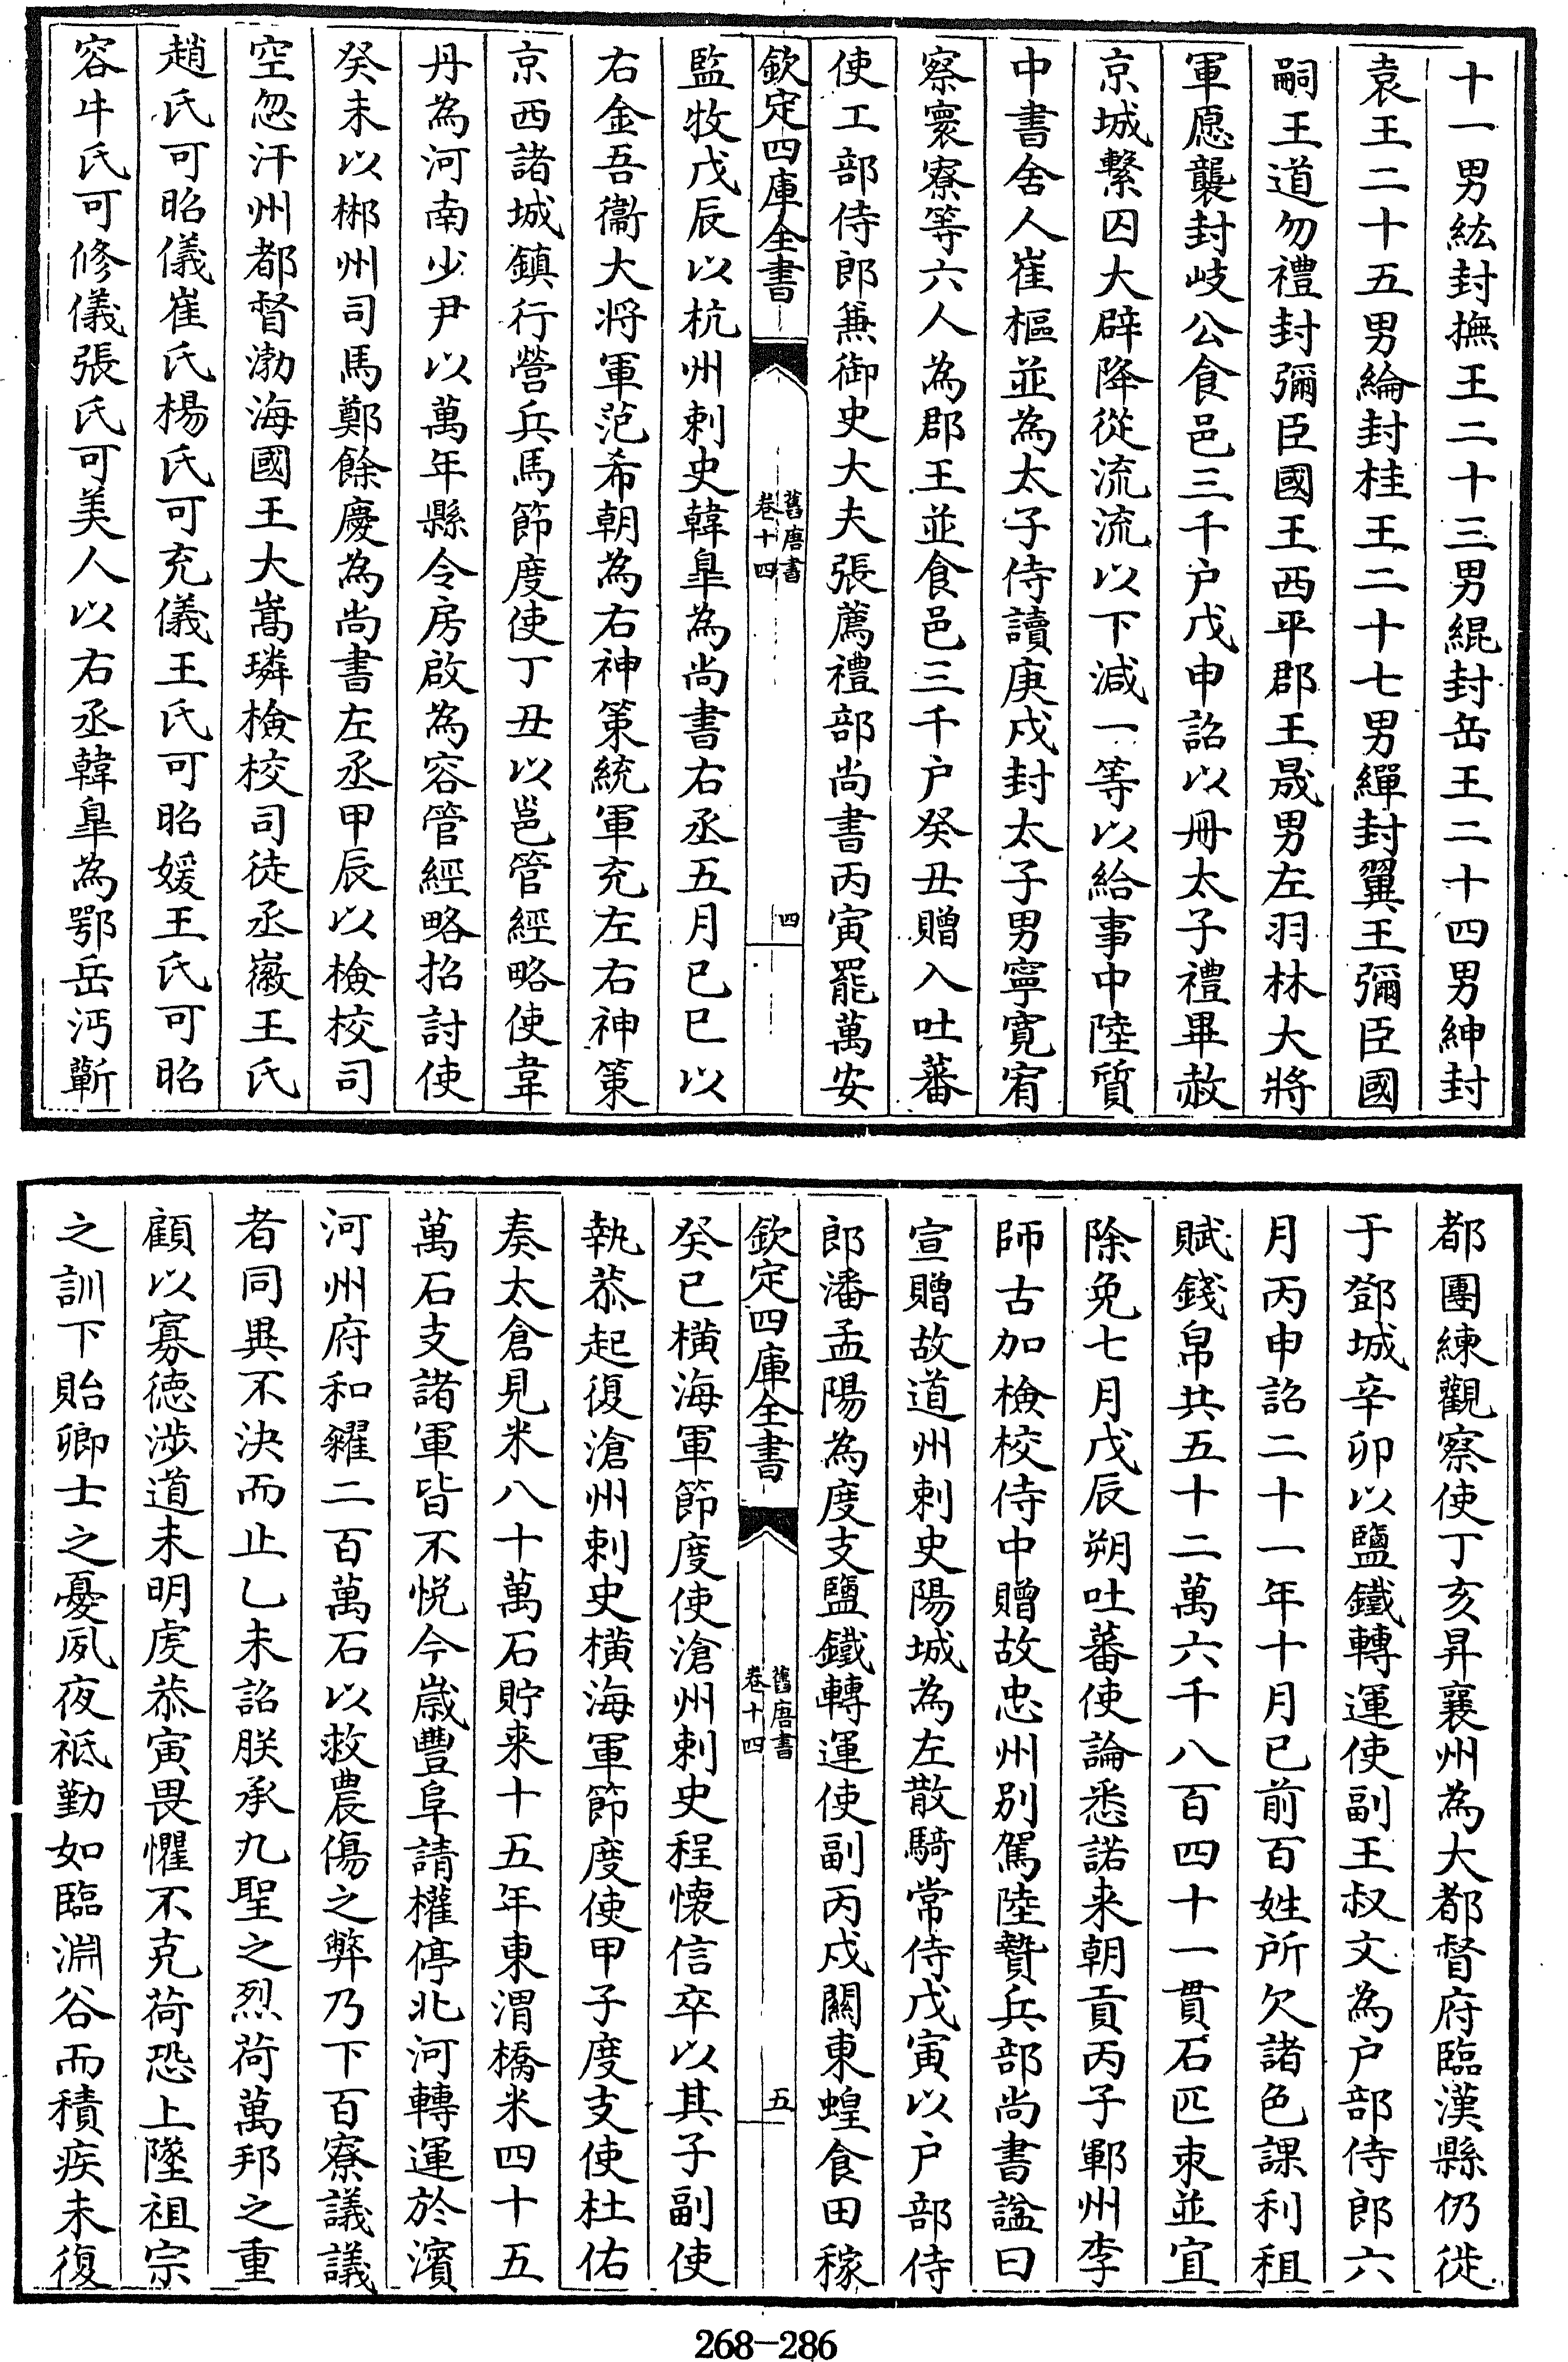 十一男紘封撫王二十三男緄封岳王二十四男紳封
袁王二十五男綸封桂王二十七男繟封翼王彌臣國
嗣王道勿禮封彌臣國王西平郡王晟男左羽林大將
軍愿襲封岐公食邑三千户戊申詔以冊太子禮畢赦
京城繫囚大辟降從流流以下減一等以給事中陸質
中書舍人崔樞並為太子侍讀庚戌封太子男寧寛宥
察寰寮等六人為郡王並食邑三千户癸丑贈入吐蕃
使工部侍郎兼御史大夫張薦禮部尚書丙寅罷萬安
欽定四庫全書
舊唐書
卷十四
四
監牧戊辰以杭州刺史韓臯為尚書右丞五月己巳以
右金吾衞大将軍范希朝為右神策統軍充左右神策
京西諸城鎮行營兵馬節度使丁丑以邕管經略使韋
丹為河南少尹以萬年縣令房啟為容管經略招討使
癸未以郴州司馬鄭餘慶為尚書左丞甲辰以檢校司
空忽汗州都督渤海國王大嵩璘檢校司徒丞嶶王氏
趙氏可昭儀崔氏楊氏可充儀王氏可昭媛王氏可昭
容牛氏可修儀張氏可美人以右丞韓臯為鄂岳沔蘄
都團練觀察使丁亥昇襄州為大都督府臨漢縣仍徙
于鄧城辛卯以鹽鐵轉運使副王叔文為户部侍郎六
月丙申詔二十一年十月已前百姓所欠諸色課利租
賦錢帛共五十二萬六千八百四十一貫石匹束並宜
除免七月戊辰朔吐蕃使論悉諾来朝貢丙子鄆州李
師古加檢校侍中贈故忠州别駕陸贄兵部尚書諡曰
宣贈故道州刺史陽城為左散騎常侍戊寅以户部侍
郎潘孟陽為度支鹽鐵轉運使副丙戌關東蝗食田稼
欽定四庫全書
舊唐書
卷十四
五
癸已横海軍節度使滄州刺史程懐信卒以其子副使
執恭起復滄州刺史横海軍節度使甲子度支使杜佑
奏太倉見米八十萬石貯来十五年東渭橋米四十五
萬石支諸軍皆不悦今嵗豐阜請權停北河轉運於濱
河州府和糴二百萬石以救農傷之弊乃下百寮議議
者同異不決而止乙未詔朕承九聖之烈荷萬邦之重
顧以寡徳涉道未明虔恭寅畏懼不克荷恐上墜祖宗
之訓下貽卿士之憂夙夜祗勤如臨淵谷而積疾未復
268-286